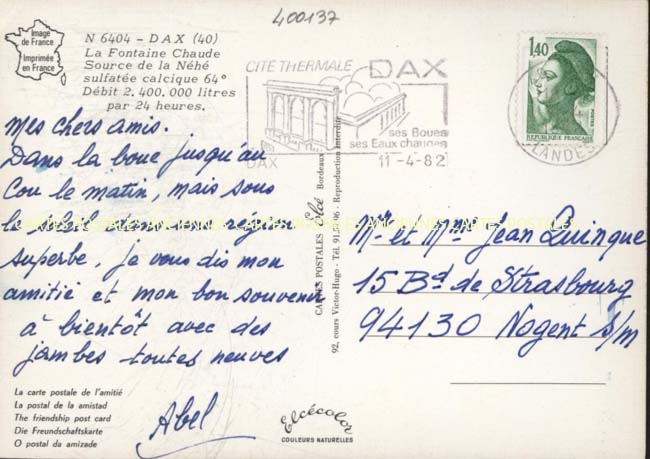 400137
Image
de France
Imprimée
en France
N 6404 - DAX (40)
La Fontaine Chaude
Source de la Néhé
sulfatée calcique 64°
Débit 2.400.000 litres
par 24 heures.
CITÉ THERMALE DAX
ses Boues
ses Eaux chaudes
DAX
11-4-82
1,40
POSTES
REPUBLIQUE FRANÇAISE
LANDES
Mes chers amis.
Dans la boue jusqu'au
Cou le matin, mais sous
le soleil dans une région
superbe, je vous dis mon
amitié et mon bon souvenir
à bientôt avec des
jambes toutes neuves
Abel
CARTES POSTALES ANCIENNES CARTES POSTALES ANCIENNES CARTES POSTALE
CARTES POSTALES Elcé Bordeaux
92, cours Victor-Hugo - Tél. Reproduction interdite
Mr et Mme Jean Quinque
15 Bd de Strasbourg
94130 Nogent s/m
La carte postale de l'amitié
La postal de la amistad
The friendship post card
Die Freundschaftskarte
O postal da amizade
Elcécolor
COULEURS NATURELLES